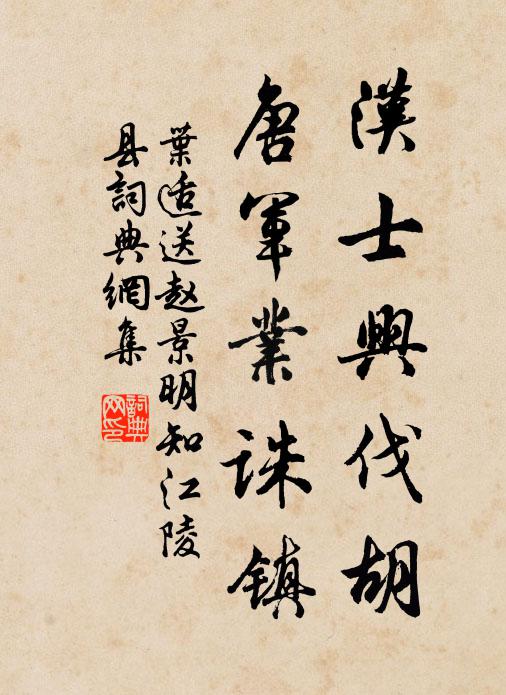 漢士興伐胡
唐軍業誅鎮
葉适送赵景明知江陵
县詞典網集
詞典网印